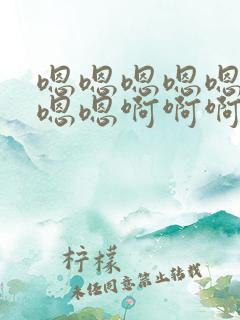 嗯嗯嗯嗯嗯
嗯嗯啊啊啊
柠檬
未经同意禁止转载